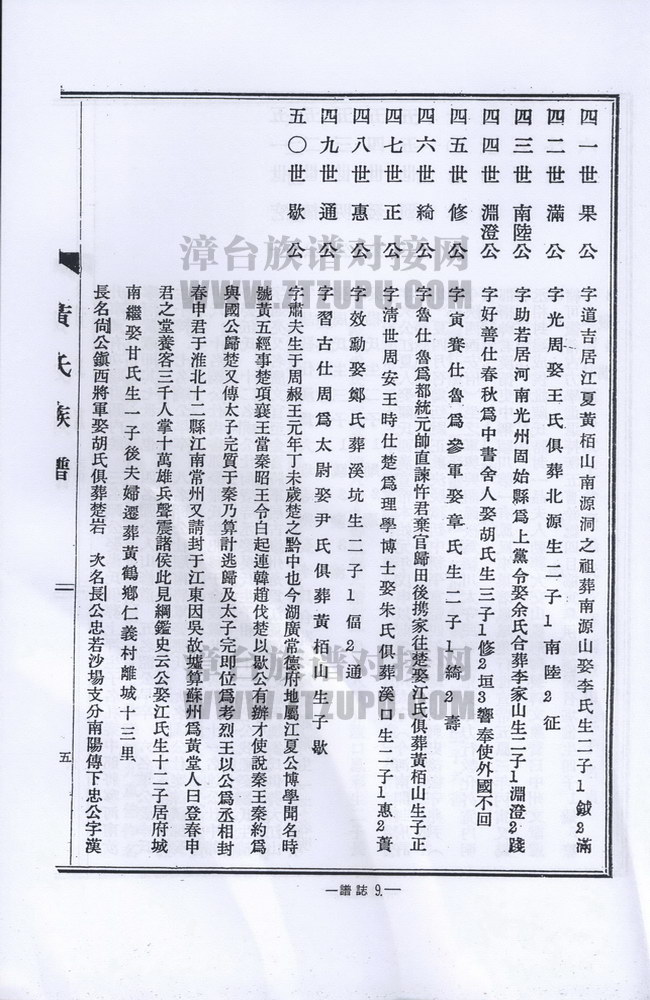 四一世果公 字道吉居江夏黃栢山南源洞之祖葬南源山娶李氏生二子1鉞2滿
四二世滿公 字光周娶王氏俱葬北源生二子1南陸2征
四三世南陸公 字助若居河南光州固始縣爲上黨令娶余氏合葬李家山生二子1淵澄2踐
四四世淵澄公 字好善仕春秋爲中書舍人娶胡氏生三子1修2垣3響奉使外國不回
四五世修公 字寅賽仕魯爲參軍娶章氏生二子1綺2壽
四六世綺公 字魯仕魯爲都統元帥直諫忤君棄官歸田後携家仕楚娶江氏俱葬黃栢山生子正
四七世正公 字淸世周安王時仕楚爲理學博士娶朱氏俱葬溪口生二子1惠2蕢
四八世惠公 字效勳娶鄭氏葬溪坑生二子1傴2通
四九世通公 字習古仕周爲太尉娶尹氏俱葬黃栢山生子歇
五〇世歇公 字肅夫生于周赧王元年丁未歲楚之黔中也今湖廣常德府地屬江夏公博學聞名時
號黃五經事楚項襄王當秦昭王令白起連韓趙伐楚以歇公有辦才使說秦王秦約爲
與國公歸楚又傳太子完質于秦乃算計逃歸及太子完即位爲考烈王以公爲丞相封
春申君于淮北十二縣江南常州又請封于江東因吳故墟算蘇州爲黃堂人曰登春申
君之堂養客三千人掌十萬雄兵聲震諸侯此見綱鑑史云公娶江氏生十二子居府城
南繼娶甘氏生一子後夫婦遷葬黃鶴鄕仁義村離城十三里
長名尙公鎭西將軍娶胡氏俱葬楚岩 次名長公忠若沙場支分南陽傳下忠公字漢
黃氏族譜
五
—譜誌 9.—
漳台族谱对接网
WWW.ZTZUPU.COM
漳台族谱对接网
WWW.ZTZUPU.COM